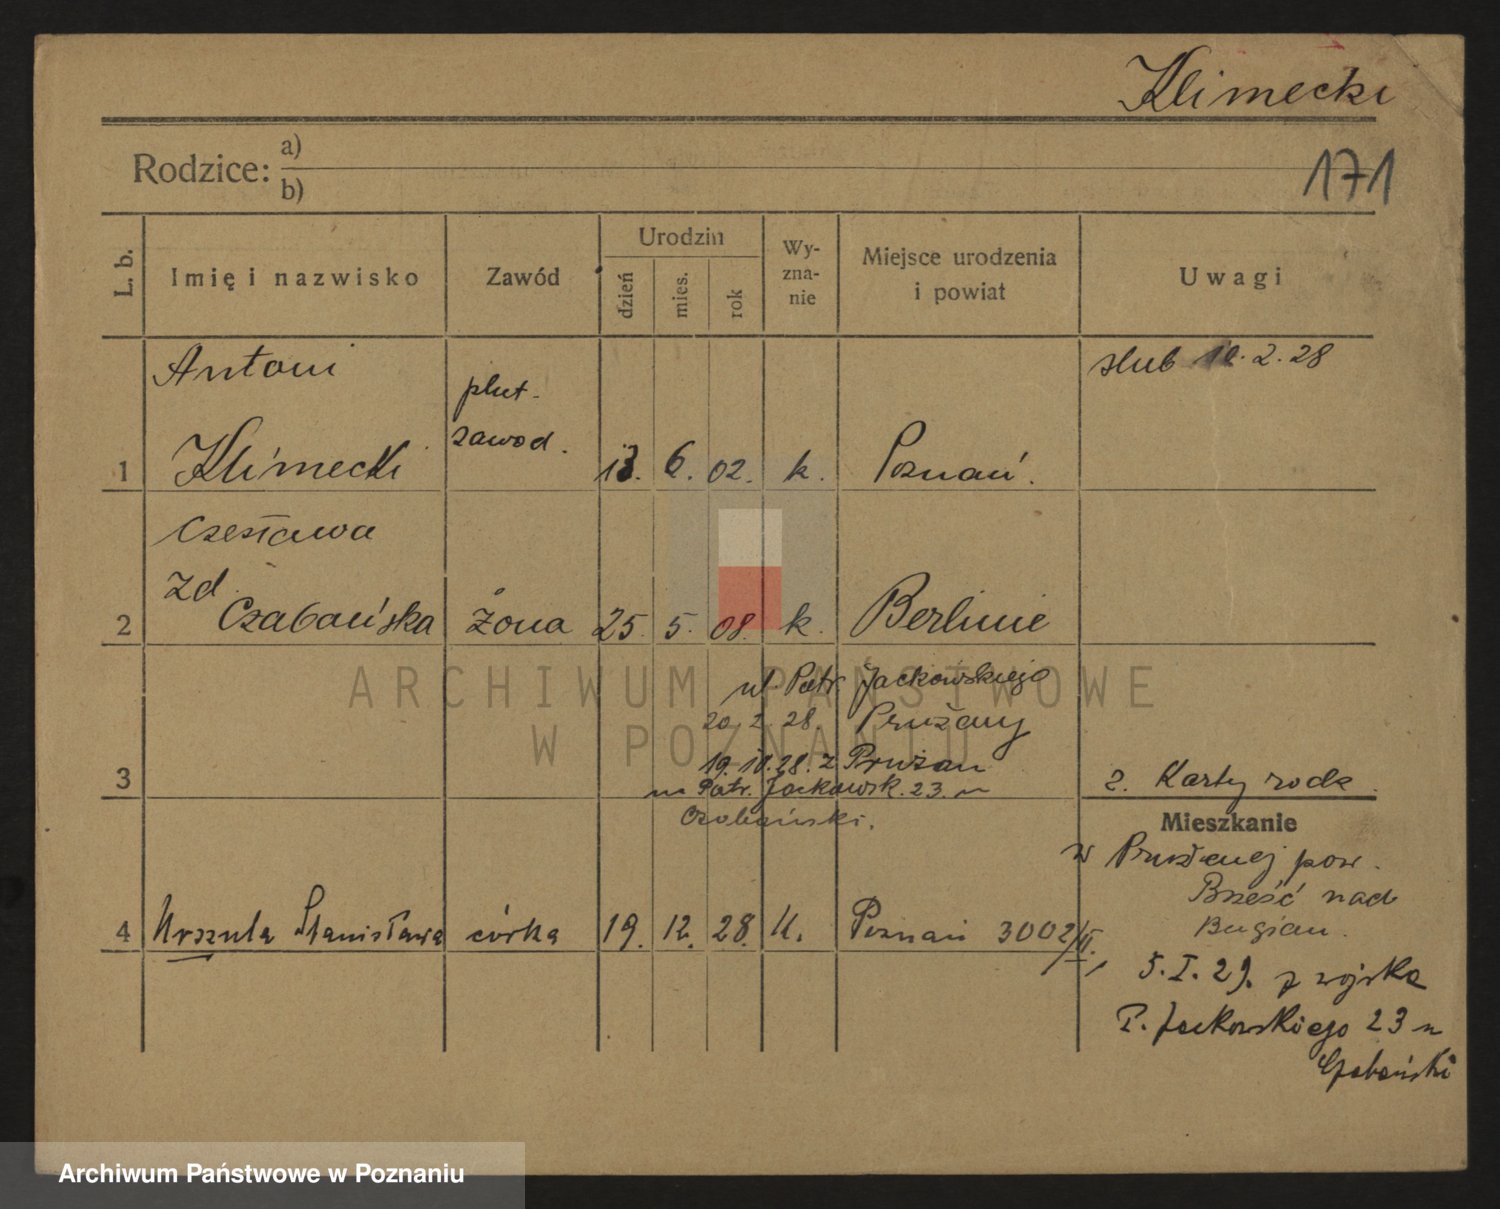 Klimecki
Rodzice: a)
b)
171
L. b.
Imię i nazwisko
Zawód
Urodzin
dzień
mies.
rok
Wy-
zna-
nie
Miejsce urodzenia
i powiat
Uwagi
Antoni
plut.
zawod.
ślub 10.2.28
1 Klimecki 13. 6. 02. k. Poznań.
Czesława
zd.
2 Czabańska żona 25. 5. 08. k. Berlinie
ul. Patr. Jackowskiego
20.2.28. Prużany
19.10.28. z Prużan
3
Patr. Jackowsk. 23.
Czabański.
z. Karty rodz.
Mieszkanie
w Prużanej pow.
Brześć nad
Bugiem.
4 Urszula Stanisława córka 19. 12. 28. K. Poznań 3002/II.
5.I.29. z wojska
P. Jackowskiego 23
Czabański
ARCHIWUM PAŃSTWOWE
W POZNANIU
Archiwum Państwowe w Poznaniu